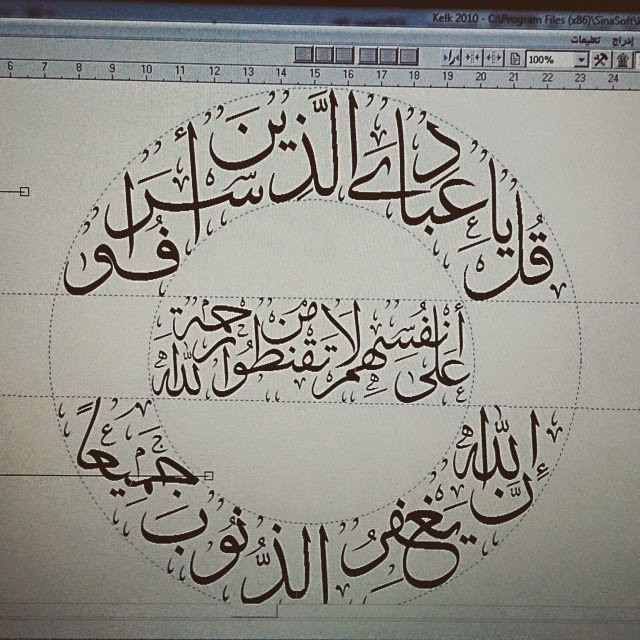 Kelk 2010 - C:\Program Files (x86)\SinaSoft\
إدراج تعليمات
100%
6 7 8 9 10 11 12 13 14 15 16 17 18 19 20 21 22 23 24
قُل يا عِبادِيَ الَّذينَ أَسرَفُوا
عَلى أَنفُسِهِم لا تَقنَطُوا مِن رَحمَةِ اللَّهِ
إِنَّ اللَّهَ يَغفِرُ الذُّنُوبَ جَمِيعاً